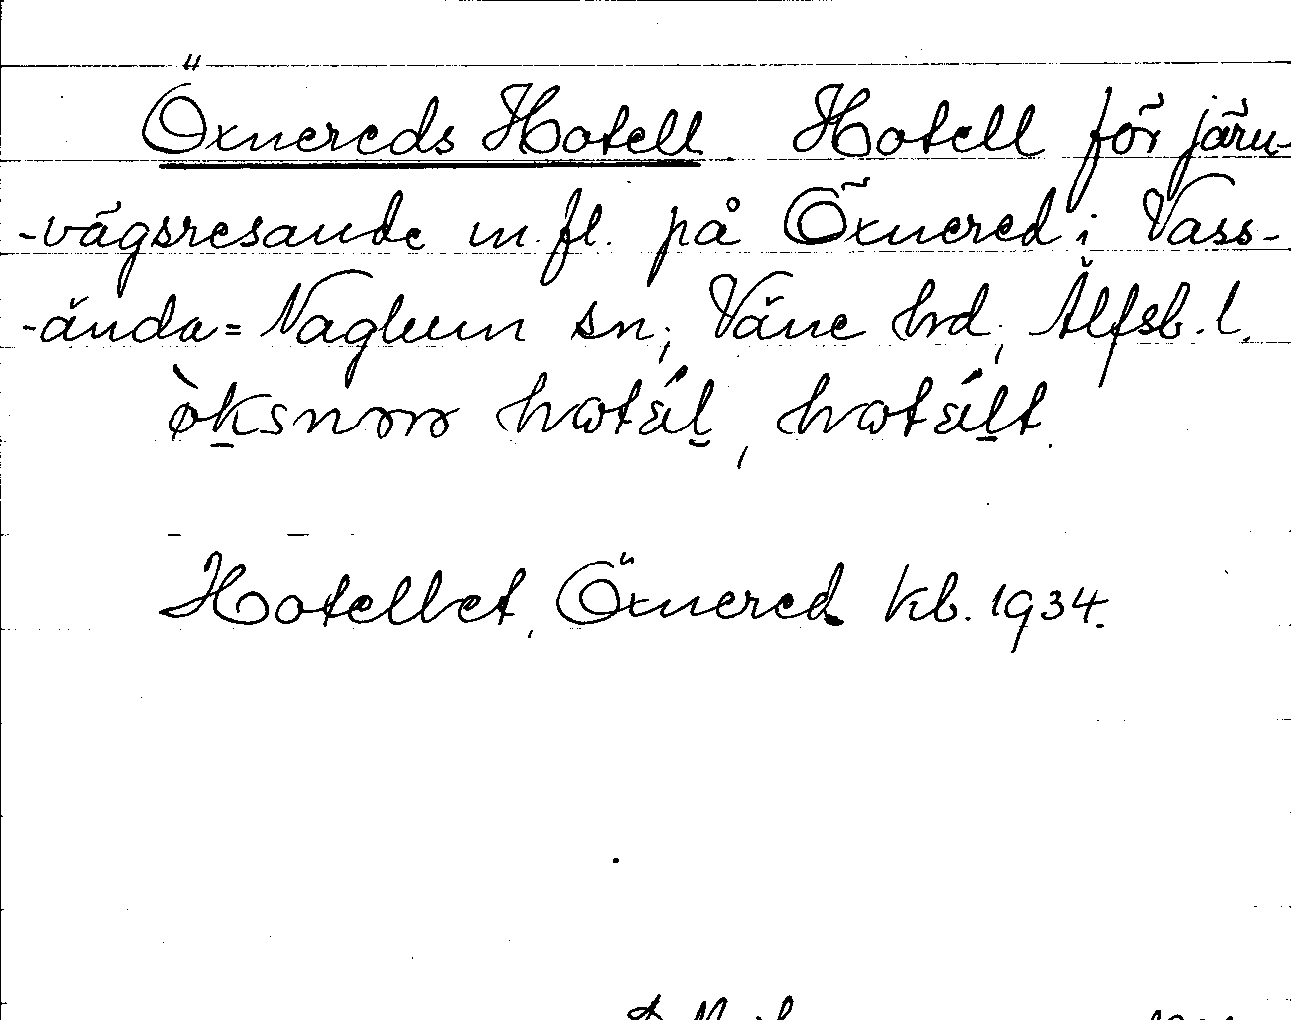 Öxnereds Hotell. Hotell för järn-
-vägsresande m.fl. på Öxnered i Vass-
-ända=Naglum sn, Väne hrd, Älfsb. l.
hotäl, hotält.
Hotellet, Öxnered kb. 1934.